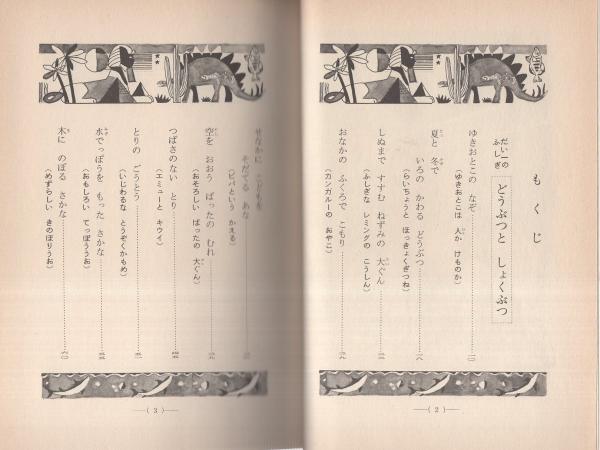 もくじ
だい一の ふしぎ
どうぶつと しょくぶつ
ゆきおとこの なぞ
(ゆきおとこは 人か けものか)
夏と 冬で
いろの かわる どうぶつ
(らいちょうと ほっきょくぎつね)
しぬまで すすむ ねずみの 大ぐん
(ふしぎな レミングの こうしん)
おなかの ふくろで こもり
(カンガルーの おやこ)
(2)
せなかに こどもを
そだてる あな
(ピパという かえる)
空を おおう ばったの むれ
(おそろしい ばったの 大ぐん)
つばさのない とり
(エミューと キウイ)
とりの ごうとう
(いじわるな とうぞくかもめ)
水でっぽうを もった さかな
(おもしろい てっぽううお)
木に のぼる さかな
(めずらしい きのぼりうお)
(3)